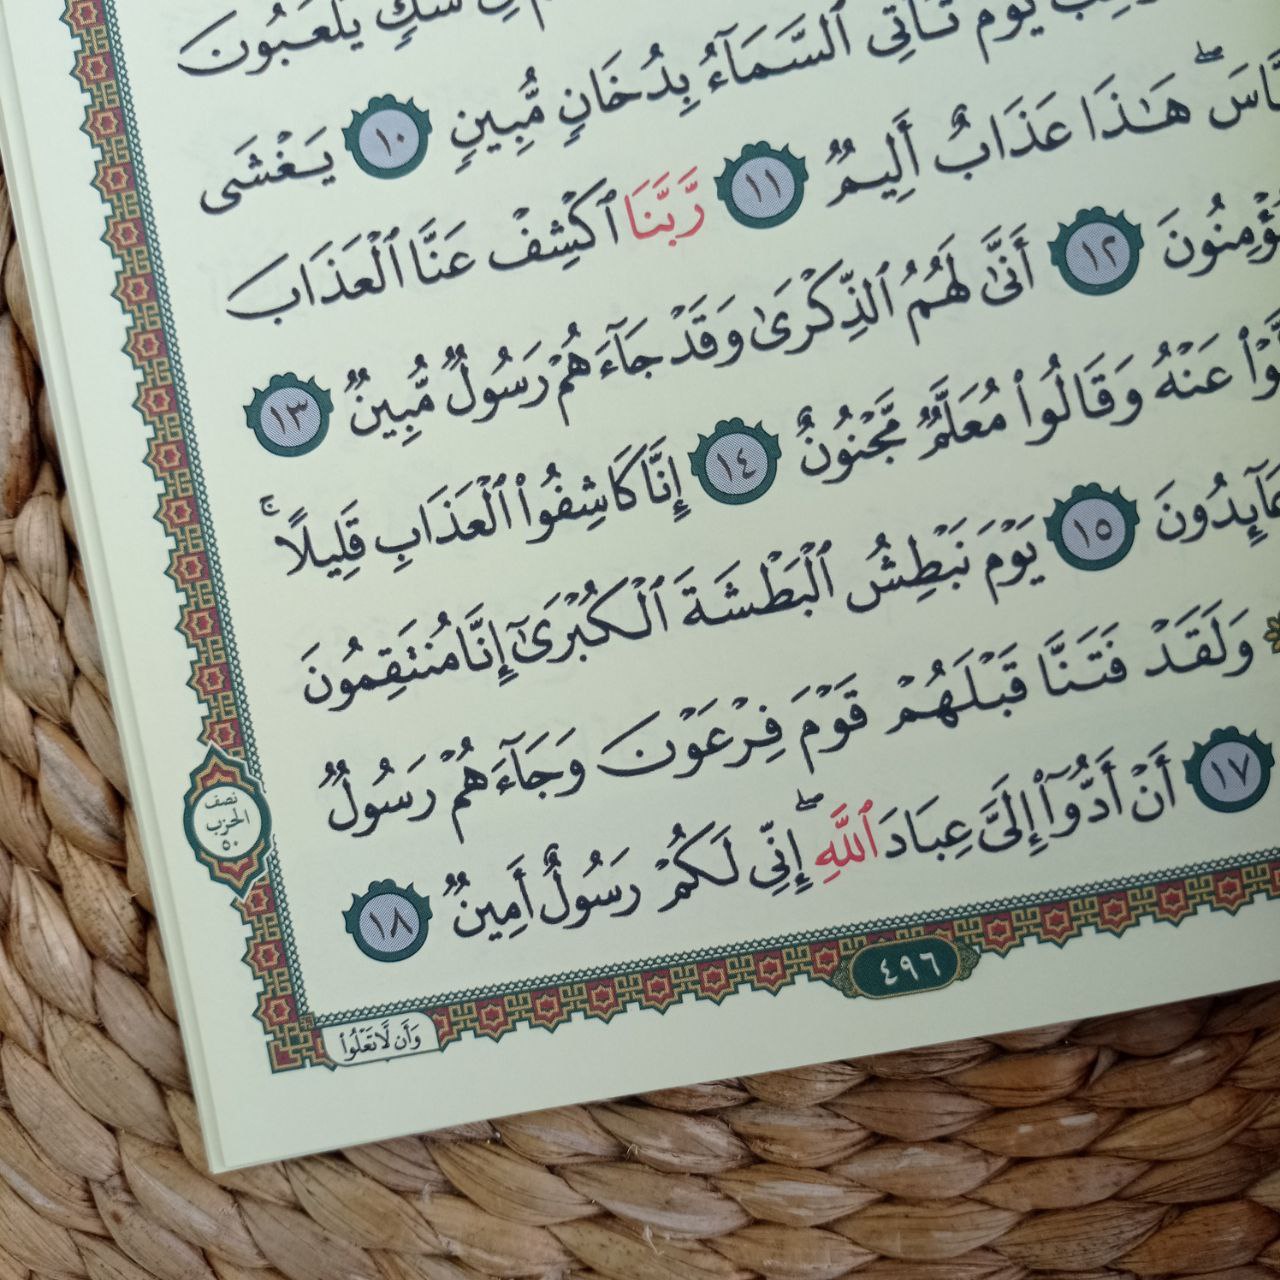 شَكٍّ يَلْعَبُونَ
يَوْمَ تَأْتِى ٱلسَّمَآءُ بِدُخَانٍ مُّبِينٍ ١٠ يَغْشَى
هَـٰذَا عَذَابٌ أَلِيمٌ ١١ رَّبَّنَا ٱكْشِفْ عَنَّا ٱلْعَذَابَ
١٢ أَنَّىٰ لَهُمُ ٱلذِّكْرَىٰ وَقَدْ جَآءَهُمْ رَسُولٌ مُّبِينٌ ١٣
عَنْهُ وَقَالُوا۟ مُعَلَّمٌ مَّجْنُونٌ ١٤ إِنَّا كَاشِفُوا۟ ٱلْعَذَابِ قَلِيلًا ۚ
١٥ يَوْمَ نَبْطِشُ ٱلْبَطْشَةَ ٱلْكُبْرَىٰٓ إِنَّا مُنتَقِمُونَ
وَلَقَدْ فَتَنَّا قَبْلَهُمْ قَوْمَ فِرْعَوْنَ وَجَآءَهُمْ رَسُولٌ
١٧ أَنْ أَدُّوٓا۟ إِلَىَّ عِبَادَ ٱللَّهِ ۖ إِنِّى لَكُمْ رَسُولٌ أَمِينٌ ١٨
نصف
الحزب
٥٠
٤٩٦
وَأَن لَّا تَعْلُوا۟